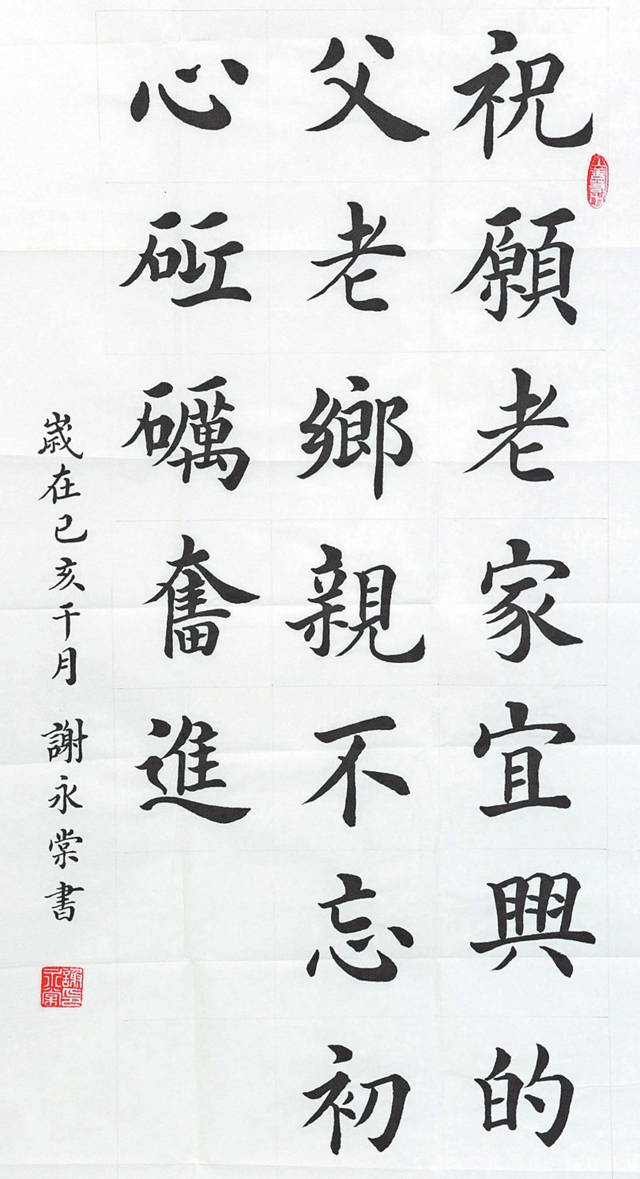 祝願老家宜興的
父老鄉親不忘初
心砥礪奮進
歲在己亥千月 謝永棠書